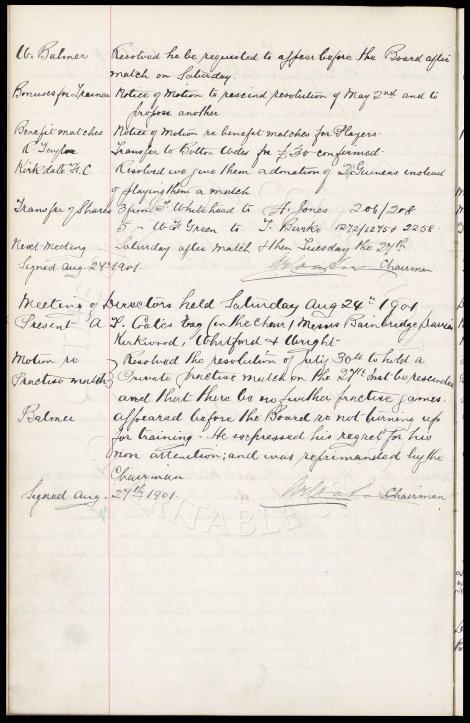 W. Balmer Resolved he be requested to appear before the Board after
match on Saturday.
Bonuses for Trainer Notice of Motion to rescind resolution of May 2nd and to
propose another
Benefit matches Notice of Motion re benefit matches for Players.
R Taylor Transfer to Bolton Wdrs for £30 confirmed.
Kirkdale F.C Resolved we give them a donation of 2 Guineas instead
of playing them a match
Transfer of Shares 3 from T Whitehead to H. Jones 206/208
5 " W H Green to T. Burke 1272/1275 & 2258
Next Meeting Saturday after match & then Tuesday the 27th
Signed Aug. 24th 1901. Chairman
Meeting of Directors held Saturday Aug 24th 1901
Present A T. Coates Esq (in the Chair) Messrs Bainbridge, Davies
Kirkwood, Whitford & Wright
Motion re Resolved the resolution of July 30th to hold a
Practise match Private practise match on the 27th inst be rescinded
and that there be no further practise games.
Balmer appeared before the Board re not turning up
for training. He expressed his regret for his
non attention; and was reprimanded by the
Chairman
Signed Aug. 27th 1901. Chairman